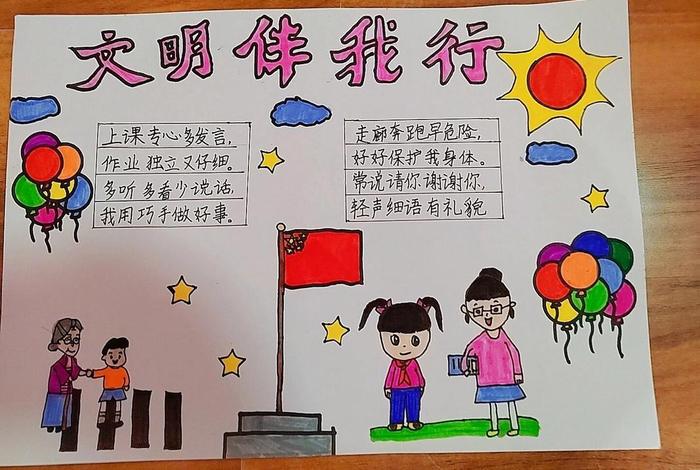 文明伴我行
上课专心多发言,
作业独立又仔细。
多听多看少说话,
我用巧手做好事。
走廊奔跑早危险,
好好保护我身体。
常说请你谢谢你,
轻声细语有礼貌